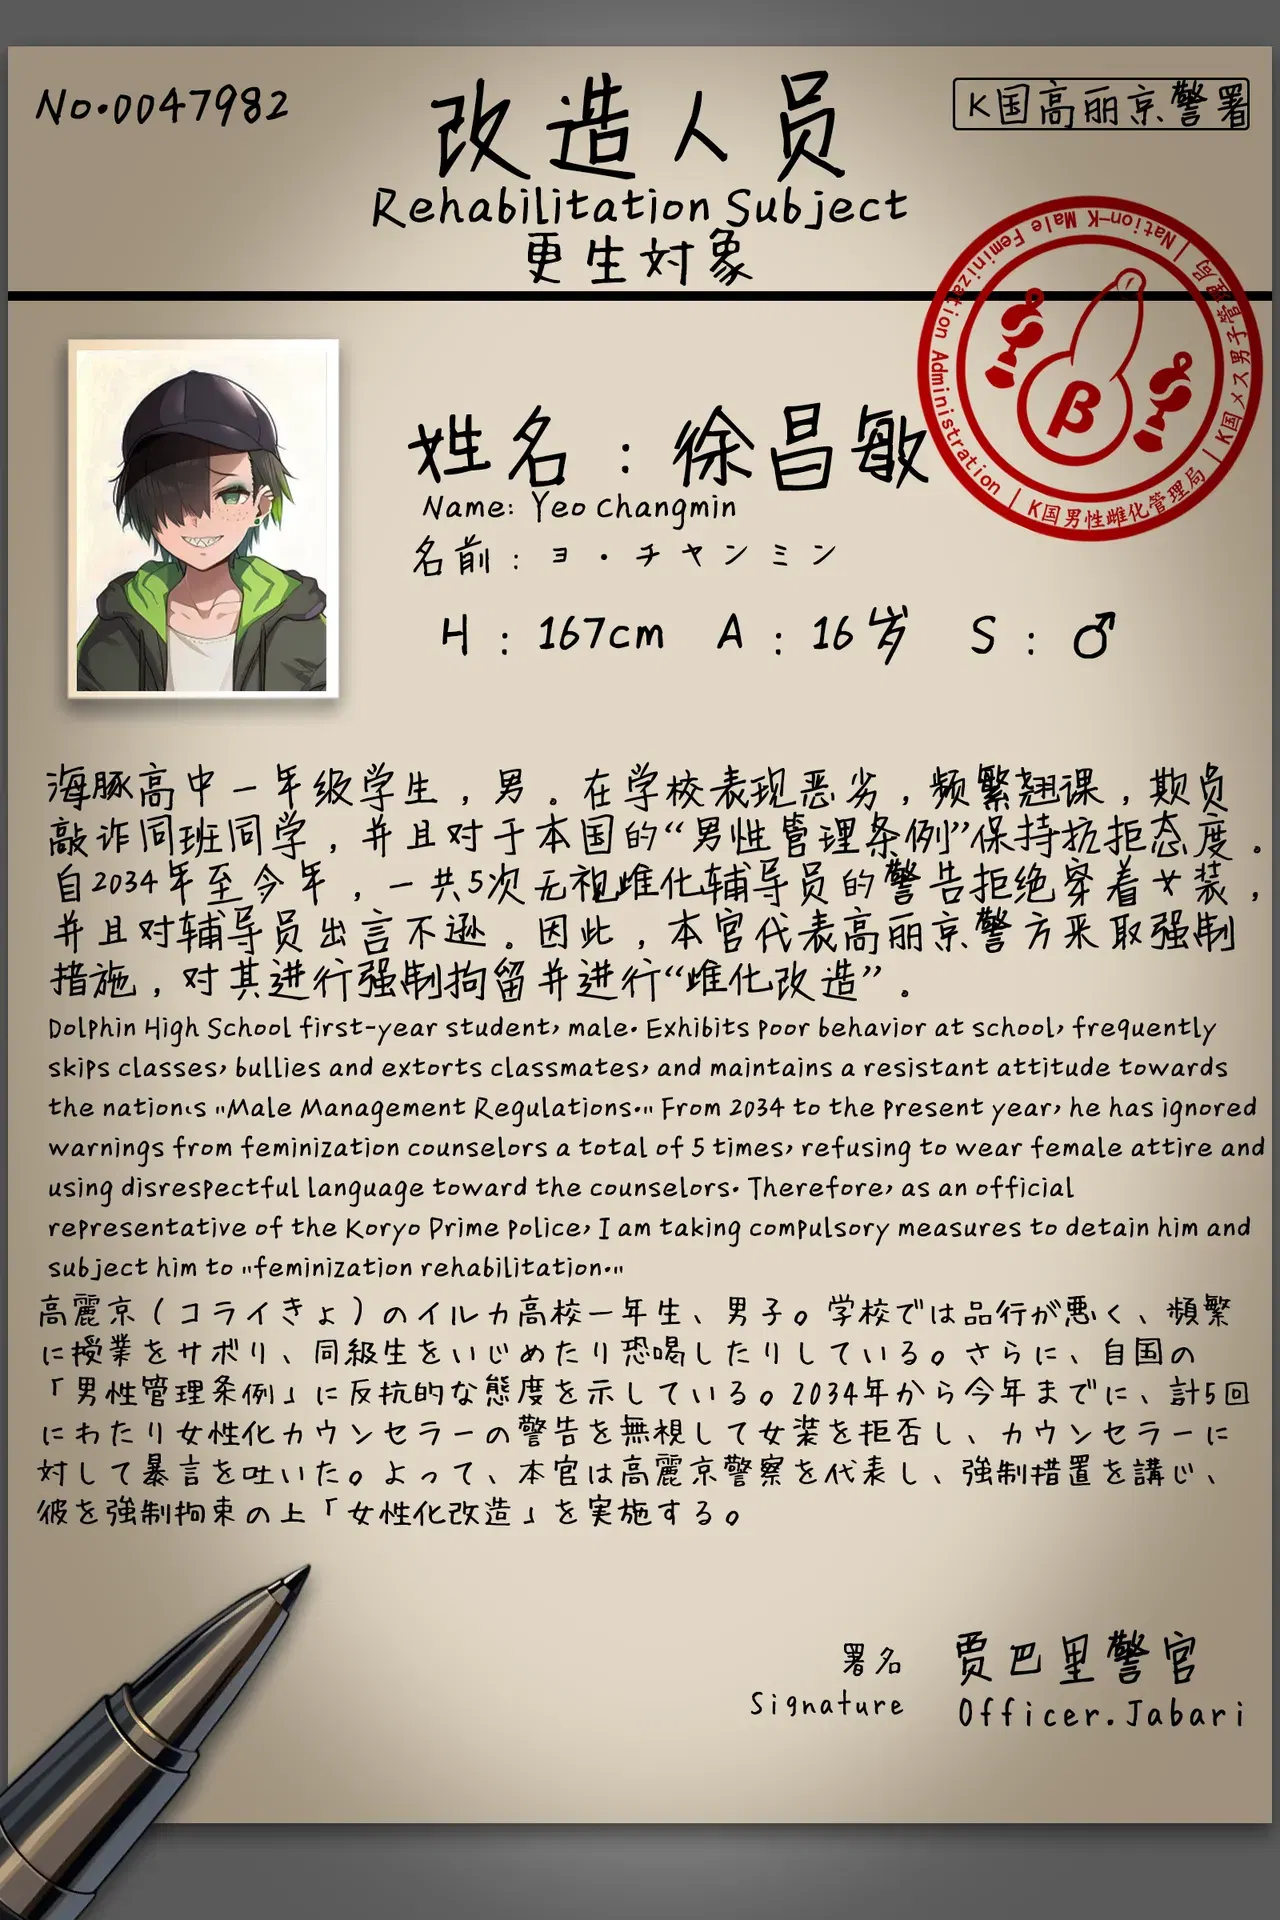 No.0047982
改造人员
K国高丽京警署
Rehabilitation Subject
更生対象
Nation-K Male Feminization Administration | K国男性雌化管理局 | K国メス男子管理局 |
β
姓名：徐昌敏
Name: Yeo Changmin
名前：ヨ・チャンミン
H：167cm A：16岁 S：♂
海豚高中一年级学生，男。在学校表现恶劣，频繁翘课，欺负
敲诈同班同学，并且对于本国的“男性管理条例”保持抗拒态度。
自2034年至今年，一共5次无视雌化辅导员的警告拒绝穿着女装，
并且对辅导员出言不逊。因此，本官代表高丽京警方采取强制
措施，对其进行强制拘留并进行“雌化改造”。
Dolphin High School first-year student, male. Exhibits poor behavior at school, frequently
skips classes, bullies and extorts classmates, and maintains a resistant attitude towards
the nation's "Male Management Regulations." From 2034 to the present year, he has ignored
warnings from feminization counselors a total of 5 times, refusing to wear female attire and
using disrespectful language toward the counselors. Therefore, as an official
representative of the Koryo Prime Police, I am taking compulsory measures to detain him and
subject him to "feminization rehabilitation."
高麗京（コライきょ）のイルカ高校一年生、男子。学校では品行が悪く、頻繁
に授業をサボり、同級生をいじめたり恐喝したりしている。さらに、自国の
「男性管理条例」に反抗的な態度を示している。2034年から今年までに、計5回
にわたり女性化カウンセラーの警告を無視して女装を拒否し、カウンセラーに
対して暴言を吐いた。よって、本官は高麗京警察を代表し、強制措置を講じ、
彼を強制拘束の上「女性化改造」を実施する。
署名 贾巴里警官
Signature Officer.Jabari